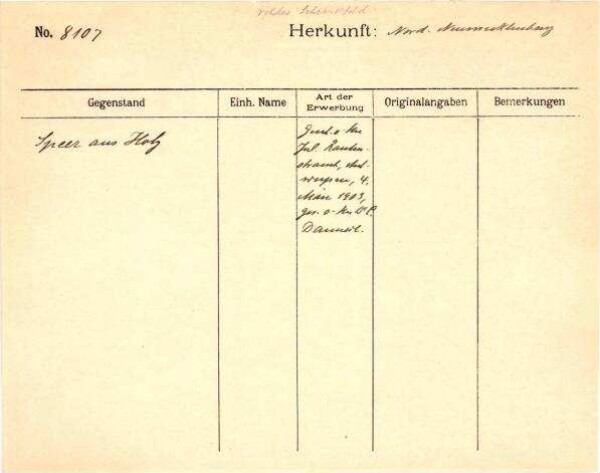 No. 8107
Herkunft: Nord. Neumecklenburg
Gegenstand
Einh. Name
Art der Erwerbung
Originalangaben
Bemerkungen
Speer aus Holz
Jul. Rauten-
strauch, Ant-
werpen, 4.
März 1903,
ges. v. Hn. Dr. P.
Danneil.